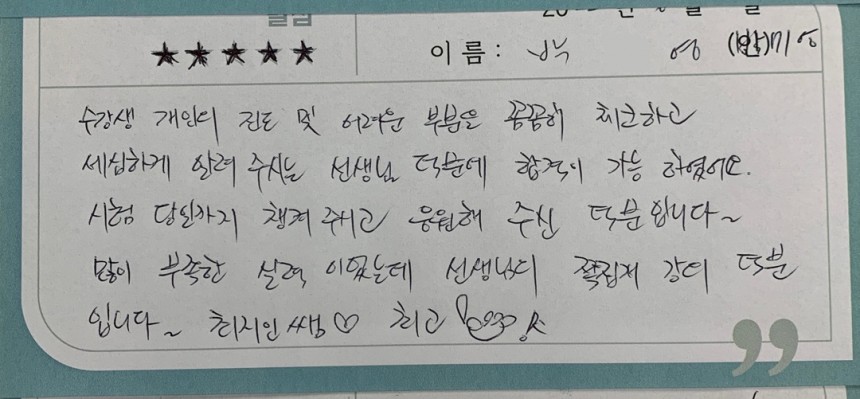 별점
★★★★★
이름: 박 영
수강생 개인의 진도 및 어려운 부분을 꼼꼼히 체크하고
세심하게 알려 주시는 선생님 덕분에 합격이 가능 하였어요.
시험 당일까지 챙겨 주시고 응원해 주신 덕분입니다~
많이 부족한 실력 이었는데 선생님의 족집게 강의 덕분
입니다~ 최지인 쌤♡ 최고